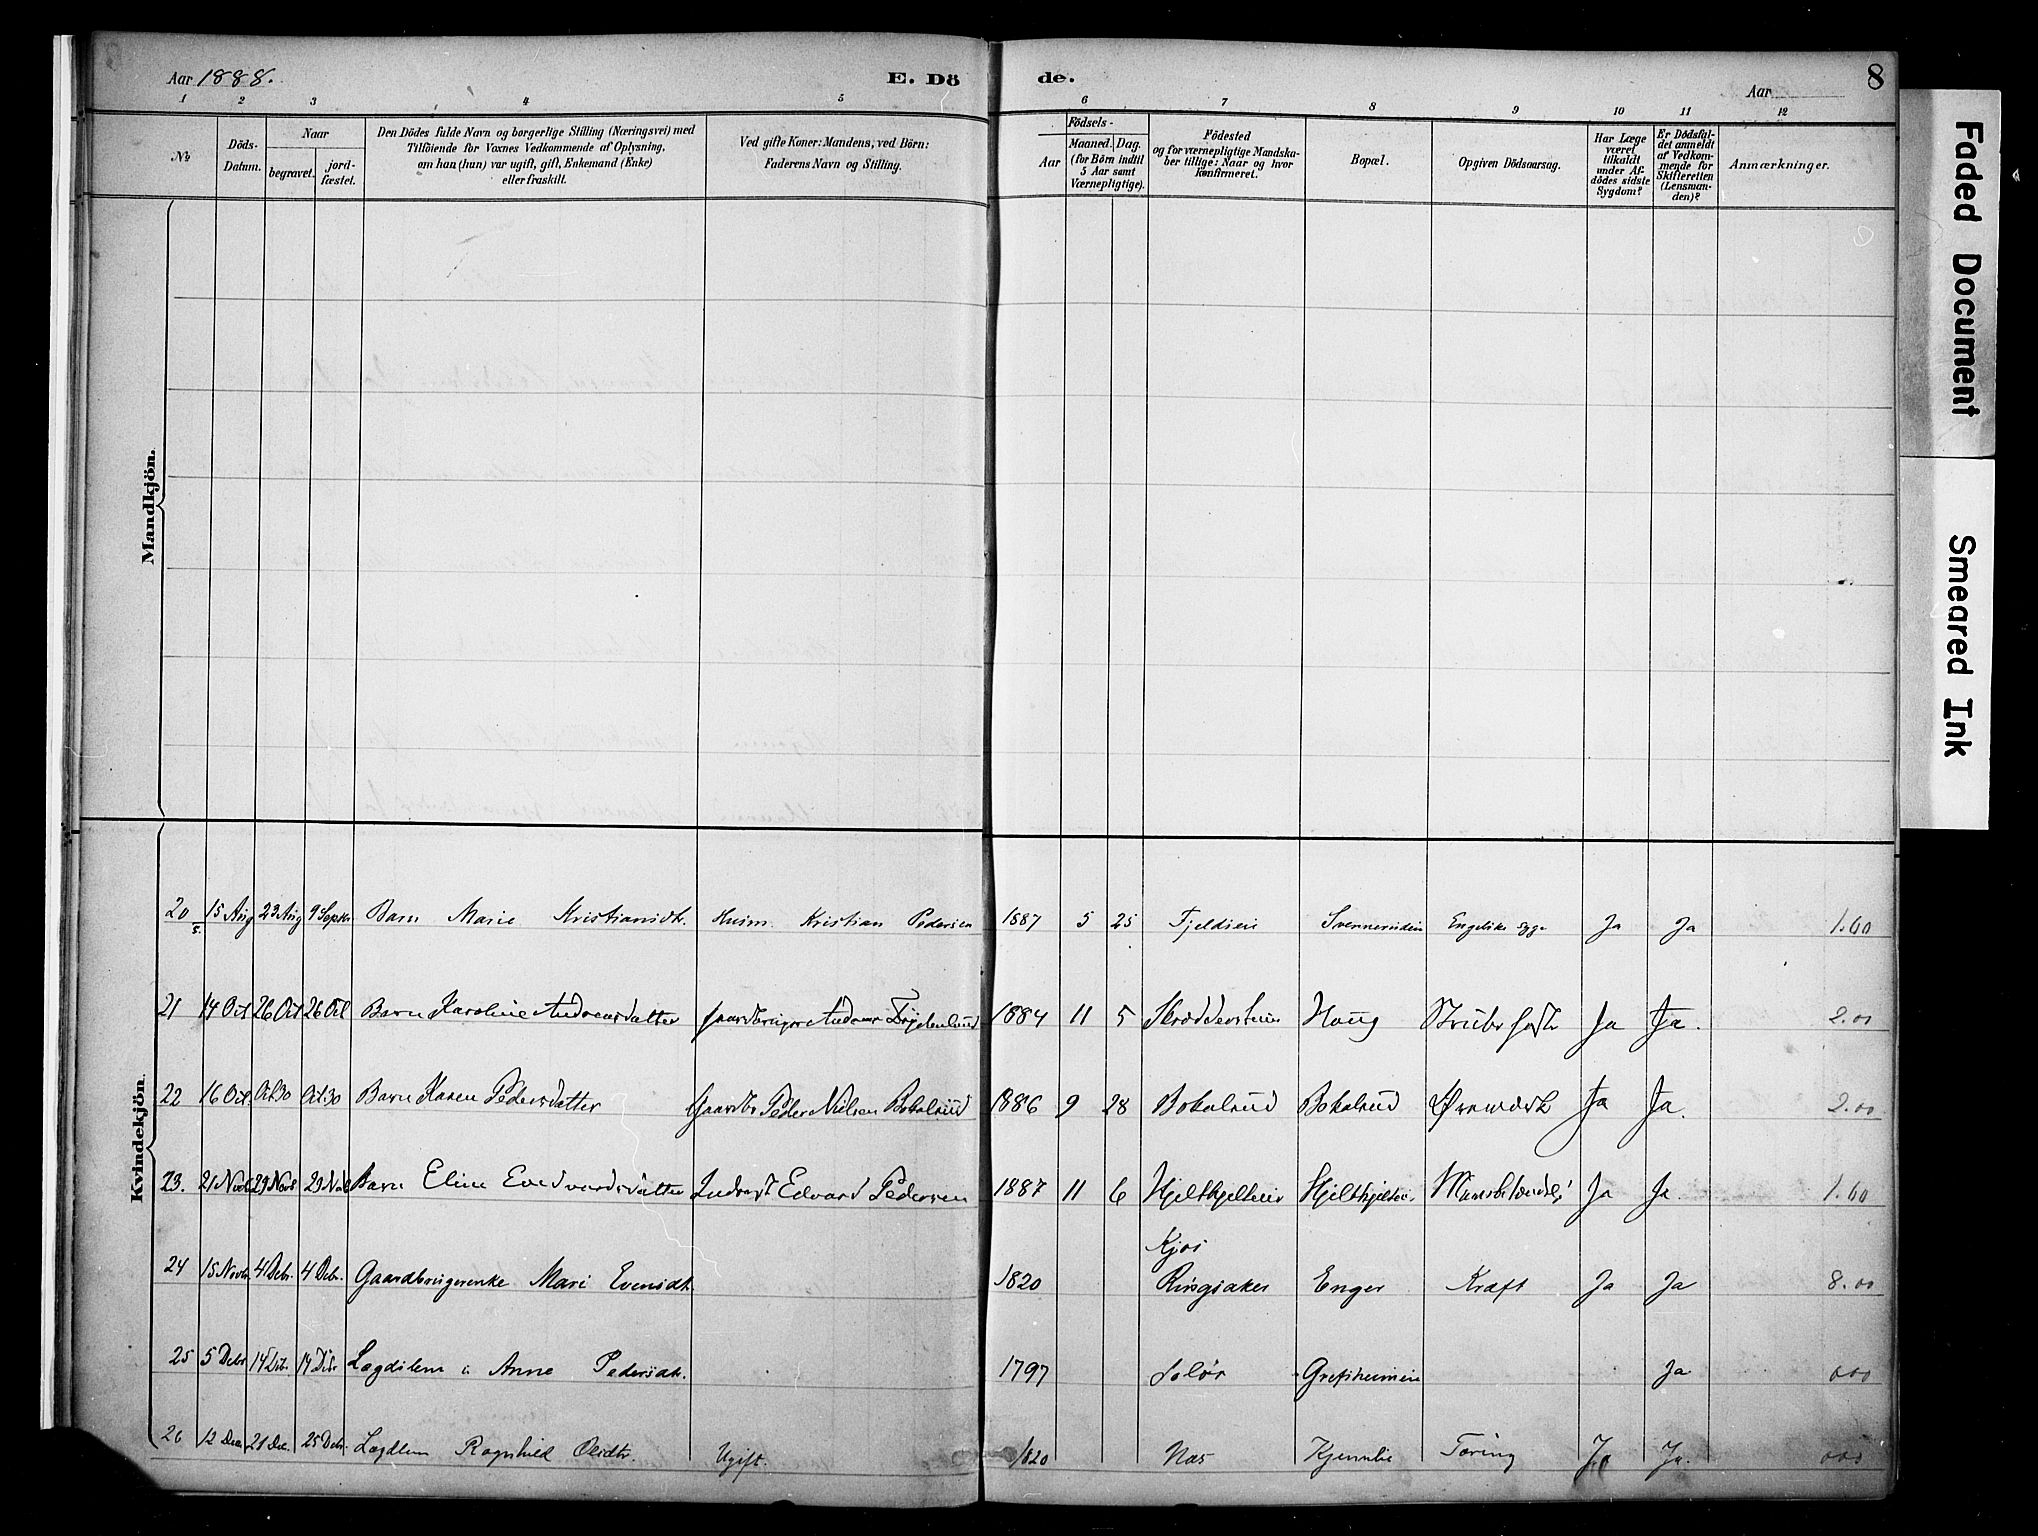 Aar 1888.
E. Dö
de.
Aar
8
1 2 3 4 5 6 7 8 9 10 11 12
No
Döds-Datum.
Naar
begravet.
jord-fæstet.
Den Dödes fulde Navn og borgerlige Stilling (Næringsvei) med
Tilföiende for Voxnes Vedkommende af Oplysning,
om han (hun) var ugift, gift, Enkemand (Enke)
eller fraskilt.
Ved gifte Koner: Mandens, ved Börn:
Faderens Navn og Stilling.
Födsels-
Aar
Maaned. Dag.
(for Börn indtil
5 Aar samt
Værnepligtige).
Födested
og for værnepligtige Mandska-
ber tillige: Naar og hvor
konfirmeret.
Bopæl.
Opgiven Dödsaarsag.
Har Læge
været
tilkaldt
under Af-
dödes sidste
Sygdom?
Er Dödsfal-
det anmeldt
af Vedkom-
mende for
Skifteretten
(Lensman-
den)?
Anmærkninger.
Mandkjön.
Kvindekjön.
20 15 Aug 23 Aug 9 Septr Barn Marie Kristiansdt. Husm. Kristian Pedersen 1887 5 25 Fjeldseie Svennerudeie Engelske Syge Ja Ja 1.60
21 14 Oct 26 Oct 26 Oct Barn Karoline Andreasdatter Gaardbruger Andreas 1884 11 5 Haug Ja Ja. 2.00
22 16 Oct. Oct 30 Oct. 30 Barn Karen Pedersdatter Gaardbr Peder Nielsen Bokalrud 1886 9 28 Bokalrud Bokalrud Ja Ja. 2.00
23. 21 Novb 29 Novb 29 Novb Barn Eline Edvardsdatter Inderst Edvard Pedersen 1887 11 6 Ja Ja 1.60
Kjos
24 15 Novbr. 4 Debr. 4 Debr. Gaardbrugerenke Mari Evensdt. 1820 Ringsaker Enger Kræft Ja Ja 8.00
25 5 Debr 14 Debr. 14 Debr Lægdslem Anne Pedersdt. 1797 Solør Grefsheimeie Ja 000
26 12 Dec. 21 Dec. 25 Debr. Lægdlem Ragnhild Olsdtr. Ugift. 1820 Næs Kjemlie Tæring Ja Ja. 000
Faded Document
Smeared Ink